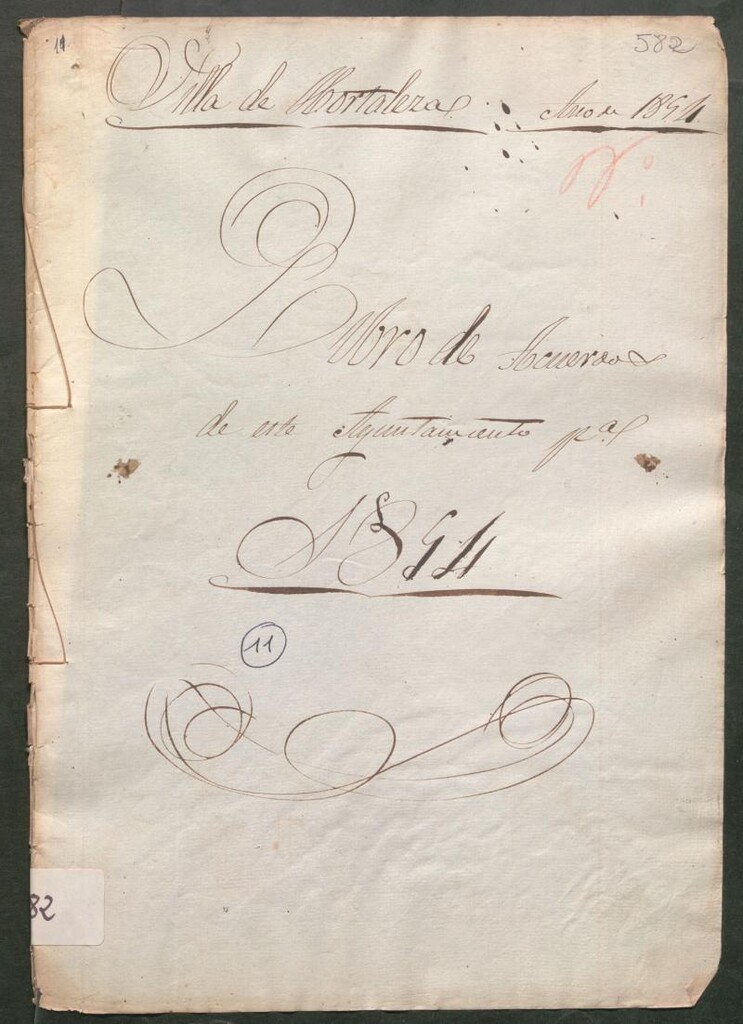 11
582
Villa de Hortaleza Año de 1854
Libro de Acuerdos
de este Ayuntamiento pa
1854
11
82